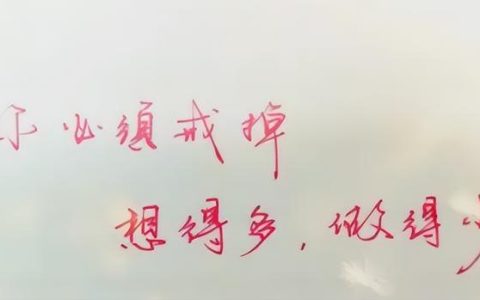 你必须戒掉
想得多,做得少